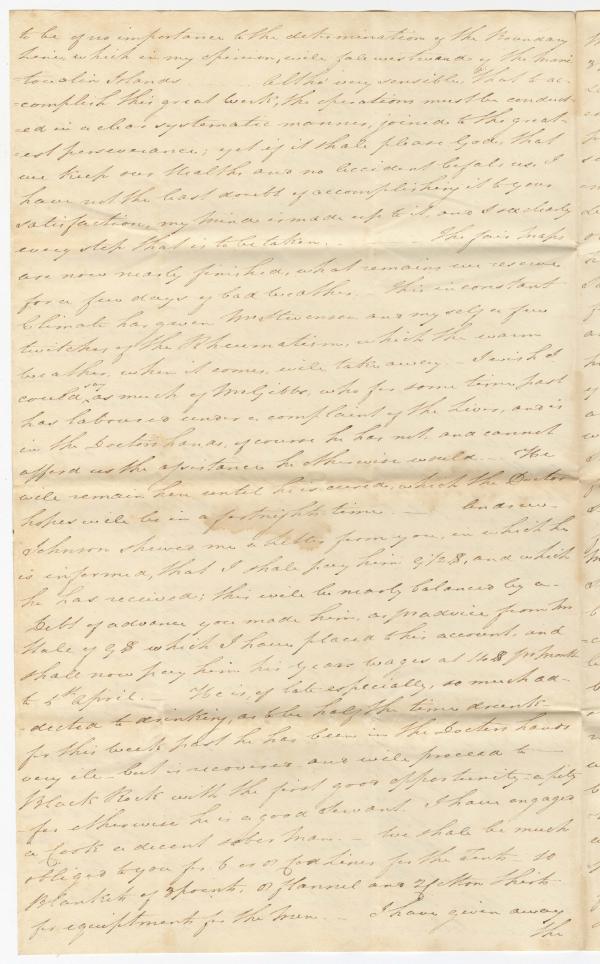 to be of no importance to the determination of the Boundary
Line, which in my opinion, will fall westward of the Mani
toualin Islands Altho' very sensible that to ac-
-complish this great work, the operations must be conduct-
-ed in a clear systematic manner, joined to the great-
-est perseverance; yet if it shall please God, that
we keep our Health, and no accident befals us, I
have not the least doubt of accomplishing it to your
satisfaction, my mind is made up to it, and I see clearly
every step that is to be taken. The fair Maps
are now nearly finished, what remains we reserve
for a few days of bad weather. This inconstant
Climate has given Mr Stevenson and myself a few
twitches of the Rheumatism, which the warm
weather, when it comes, will take away. I wish I
could say as much of Mr Gibbs, who for some time past
has laboured under a complaint of the Liver, and is
in the Doctors hands, of course he has not and cannot
afford us the assistance he otherwise would. He
will remain here until he is cured, which the Doctor
hopes will be in a fortnights time. Andrew
Johnson shewed me a letter from you, in which he
is informed, that I shall pay him 9 1/2 $, and which
he has received; this will be nearly balanced by a
Debt of advance you made him, as pr advice from Mr
Hale of 9 $ which I have placed to his account, and
shall now pay him his years wages at 14 $ pr Month
to 4th April. He is, of late especially, so much ad-
-dicted to drinking, as to be half the time drunk
for this week past he has been in the Doctors hands
very ill - but is recovered and will proceed to
Black Rock with the first good opportunity - a pity
for otherwise he is a good Servant. I have engaged
a Cook a decent sober Man. We shall be much
obliged to you for 6 or 8 Cod Lines for the Tents - 10
Blankets of 3 points, Flannel and Cotton Shirts
for equiptments for the Men. I have given away
the